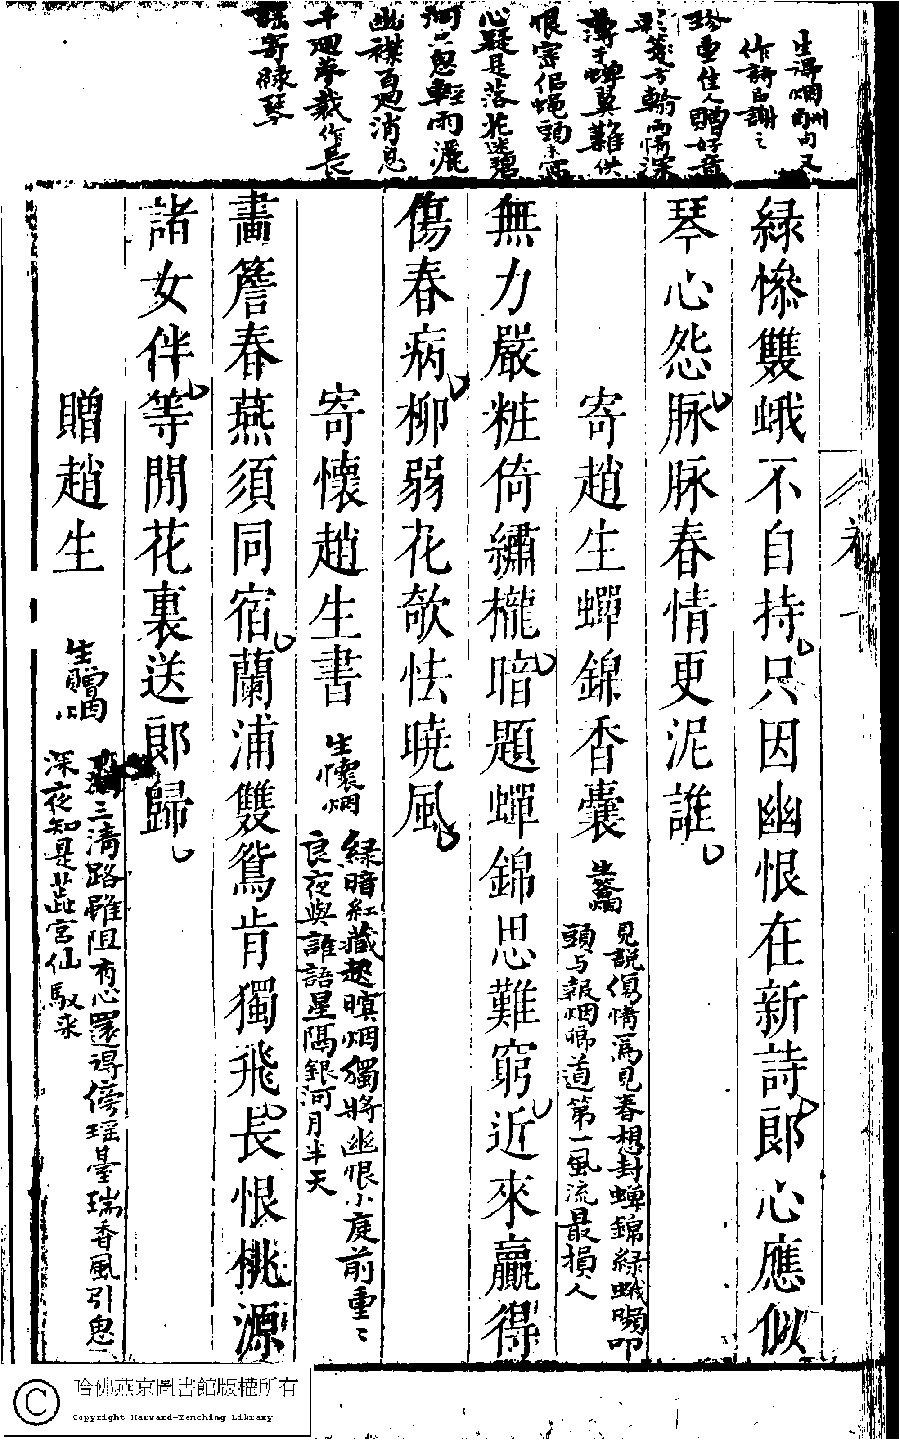 生得烟酬句又
作詩曰謝之
珍重佳人贈好音
彩箋方翰兩情深
薄于蟬翼難供
恨密佀蝇頭未寫
心疑是落花迷碧
洞只思輕雨灑
幽襟百迴消息
千迴夢裁作長
謡寄緑琴
緑慘雙蛾不自持只因幽恨在新詩郎心應似
琴心怨脉脉春情更泥誰
寄趙生蟬錦香囊
生答烟
見説傷情為見春想封蟬錦緑蛾嚬叩
頭与報烟卿道第一風流最損人
無力嚴粧倚繡櫳暗題蟬錦思難窮近來贏得
傷春病柳弱花欹怯曉風
寄懷趙生書
生懷烟
緑暗紅藏起暝烟獨將幽恨小庭前重〻
良夜與誰語星隔銀河月半天
畵簷春燕須同宿蘭浦雙鴛肯獨飛長恨桃源
諸女伴等閒花裏送郎歸
贈趙生
生贈烟
三清路雖阻有心還得傍瑶臺瑞香風引思
深夜知是蕊宮仙馭来
哈佛燕京圖書館版權所有
Copyright Harvard-Yenching Library